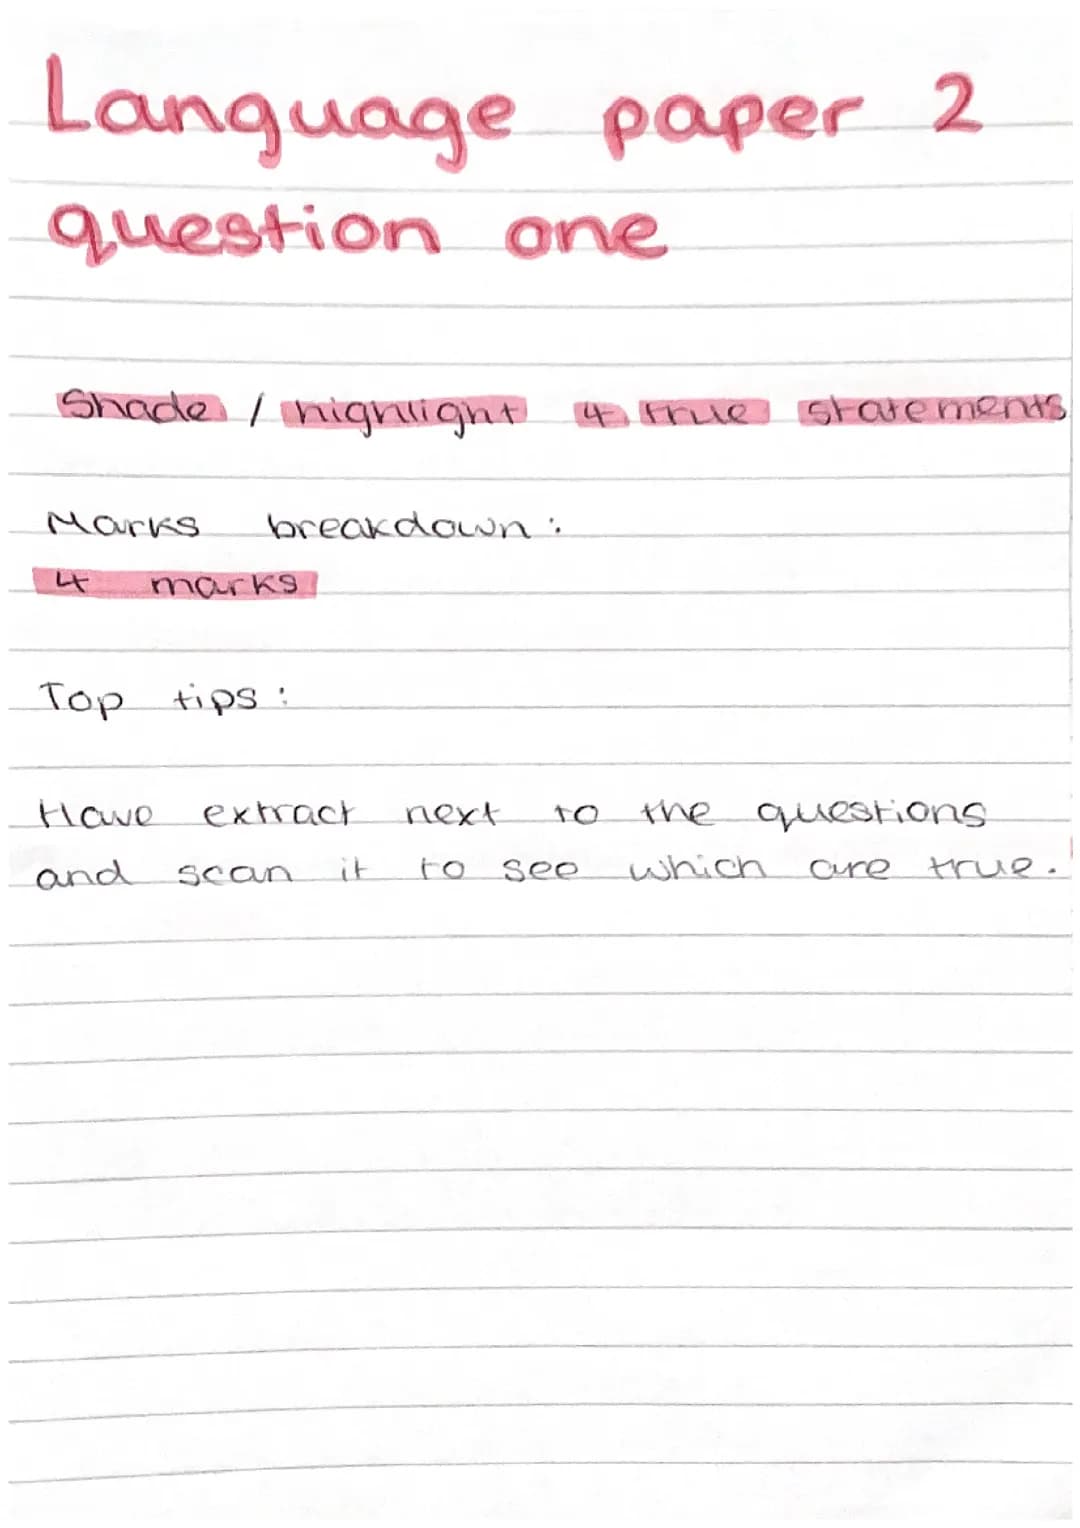 Language paper 2
question one
Shade / highlight 4 true statements
Marks breakdown:
4 marks
Top tips:
Have extract next to the questions
and scan it to see which are true.